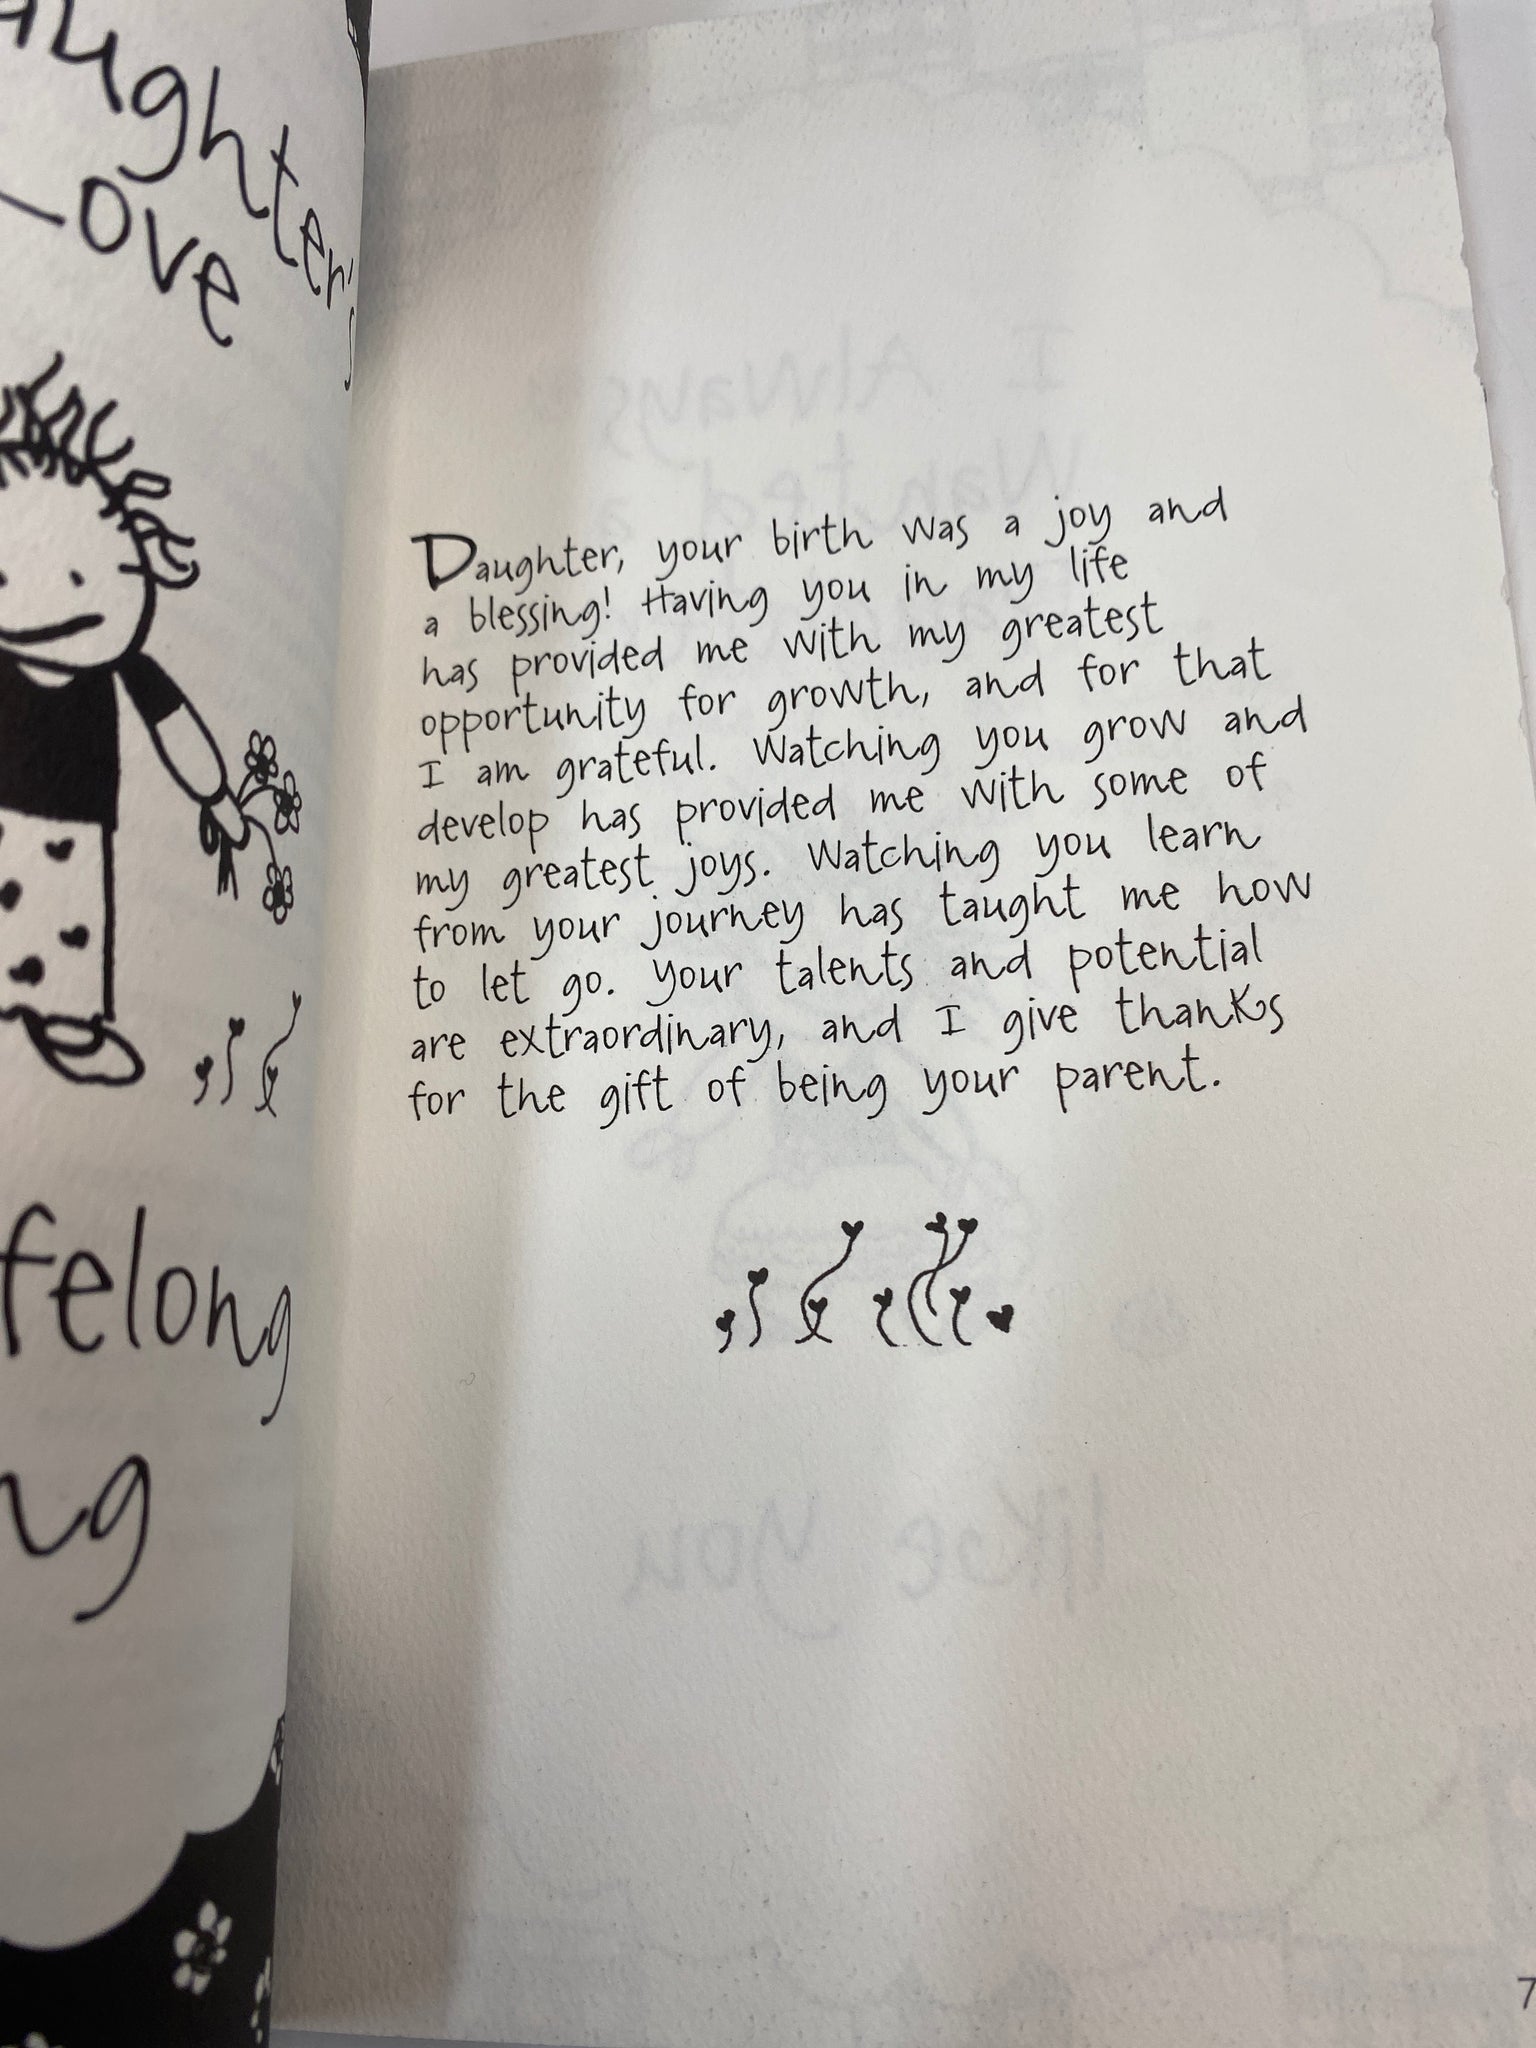 aughter's
Love
felong
ng
Daughter, your birth was a joy and
a blessing! Having you in my life
has provided me with my greatest
opportunity for growth, and for that
I am grateful. Watching you grow and
develop has provided me with some of
my greatest joys. Watching you learn
from your journey has taught me how
to let go. Your talents and potential
are extraordinary, and I give thanks
for the gift of being your parent.
I Always
Wanted a
like you
7